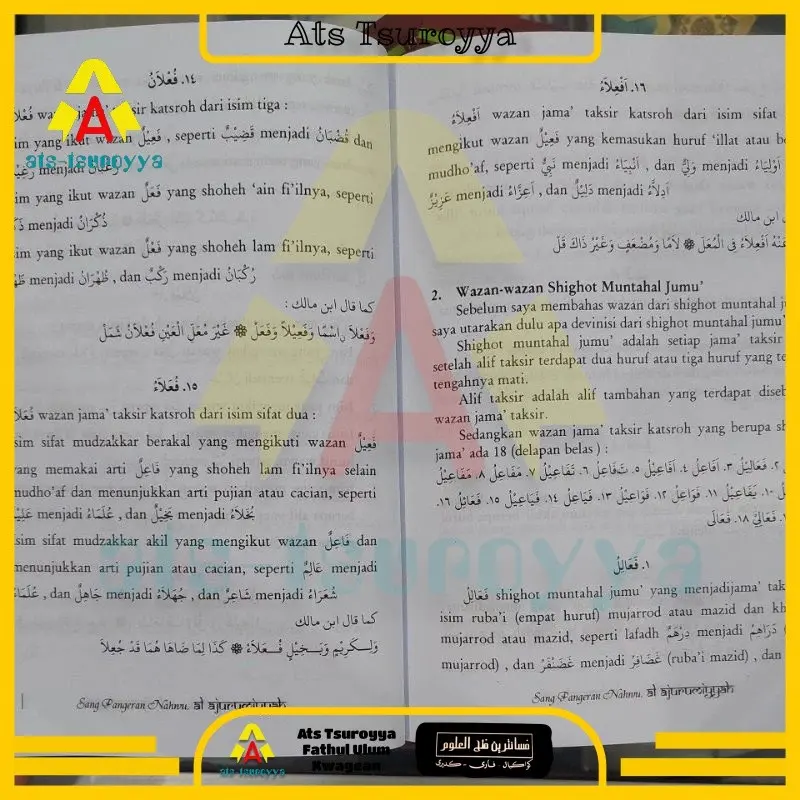 Ats Tsuroyya
١٤. فُعْلَانُ
jama' taksir katsroh dari isim tiga :
yang ikut wazan فَعِيْلٌ , seperti قَضِيْبٌ menjadi قُضْبَانُ dan
ats-tsuroyya
yang ikut wazan فَعَلٌ yang shoheh 'ain fi'ilnya, seperti
menjadi ذُكْرَانُ
yang ikut wazan فَعْلٌ yang shoheh lam fi'ilnya, seperti
menjadi ظُهْرَانُ , dan رَكْبٌ menjadi رُكْبَانُ
كما قال ابن مالك :
وَفَعْلاً نِاسْمًا وَفَعِيْلاً وَفَعَلْ ۞ غَيْرَ مُعَلِّ الْعَيْنِ فُعْلَانُ شَمَلْ
١٥. فُعَلَاءُ
wazan jama' taksir katsroh dari isim sifat dua :
sim sifat mudzakkar berakal yang mengikuti wazan فَعِيْلٌ
yang memakai arti فَاعِلٌ yang shoheh lam fi'ilnya selain
mudho'af dan menunjukkan arti pujian atau cacian, seperti
menjadi عُلَمَاءُ , dan بَخِيْلٌ menjadi بُخَلَاءُ
sim sifat mudzakkar akil yang mengikut wazan فَاعِلٌ dan
menunjukkan arti pujian atau cacian, seperti عَالِمٌ menjadi
عُلَمَاءُ , dan جَاهِلٌ menjadi جُهَلَاءُ , dan شَاعِرٌ menjadi شُعَرَاءُ
كما قال ابن مالك
وَلِكَرِيْمٍ وَبَخِيْلٍ فُعَلَاءُ ۞ كَذَا لِمَا ضَاهَا هُمَا قَدْ جُعِلَا
Sang Pangeran Nahwu. al ajurumiyyah
١٦. اَفْعِلَاءُ
اَفْعِلَاءُ wazan jama' taksir katsroh dari isim sifat
mengikut wazan فَعِيْلٌ yang kemasukan huruf 'illat atau
mudho'af, seperti نَبِيٌّ menjadi اَنْبِيَاءُ , dan وَلِيٌّ menjadi اَوْلِيَاءُ
عَزِيْزٌ menjadi اَعِزَّاءُ , dan ذَلِيْلٌ menjadi اَذِلَّاءُ
ابن مالك
عَنْهُ اَفْعِلَاءُ فِي الْمُعَلّ ۞ لَامًا وَمُضْعَفٍ وَغَيْرُ ذَاكَ قَلّ
2. Wazan-wazan Shighot Muntahal Jumu'
Sebelum saya membahas wazan dari shighot muntahal
saya utarakan dulu apa devinisi dari shighot muntahal jumu'
Shighot muntahal jumu' adalah setiap jama' taksir
setelah alif taksir terdapat dua huruf atau tiga huruf yang
tengahnya mati.
Alif taksir adalah alif tambahan yang terdapat
wazan jama' taksir.
Sedangkan wazan jama' taksir katsroh yang berupa
jama' ada 18 (delapan belas) :
٢. فَعَالِيْلُ ٣. اَفَاعِلُ ٤. اَفَاعِيْلُ ٥. تَفَاعِلُ ٦. تَفَاعِيْلُ ٧. مَفَاعِلُ ٨. مَفَاعِيْلُ
١٠. يَفَاعِيْلُ ١١. فَوَاعِلُ ١٢. فَوَاعِيْلُ ١٣. فَيَاعِلُ ١٤. فَيَاعِيْلُ ١٥. فَعَائِلُ ١٦.
فَعَالِيُّ ١٨. فَعَالَى
١. فَعَالِلُ
فَعَالِلُ shighot muntahal jumu' yang menjadijama'
isim ruba'i (empat huruf) mujarrod atau mazid dan
mujarrod atau mazid, seperti lafadh دِرْهَمٌ menjadi دَرَاهِمُ
mujarrod) , dan غَضَنْفَرٌ menjadi غَضَافِرُ (ruba'i mazid) , dan
Sang Pangeran Nahwu. al ajurumiyyah
ats-tsuroyya
ats-tsuroyya
Ats Tsuroyya
Fathul Ulum
Kwagean
فسانترين فتح العلوم